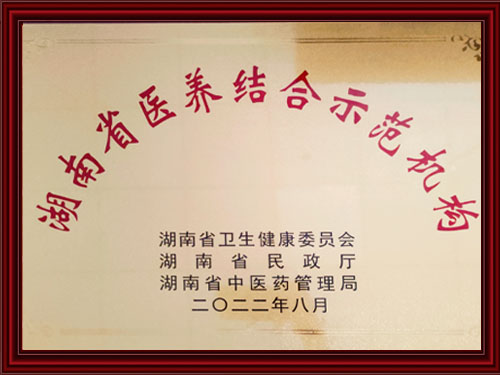 湖南省医养结合示范机构
湖南省卫生健康委员会
湖南省民政厅
湖南省中医药管理局
二〇二二年八月